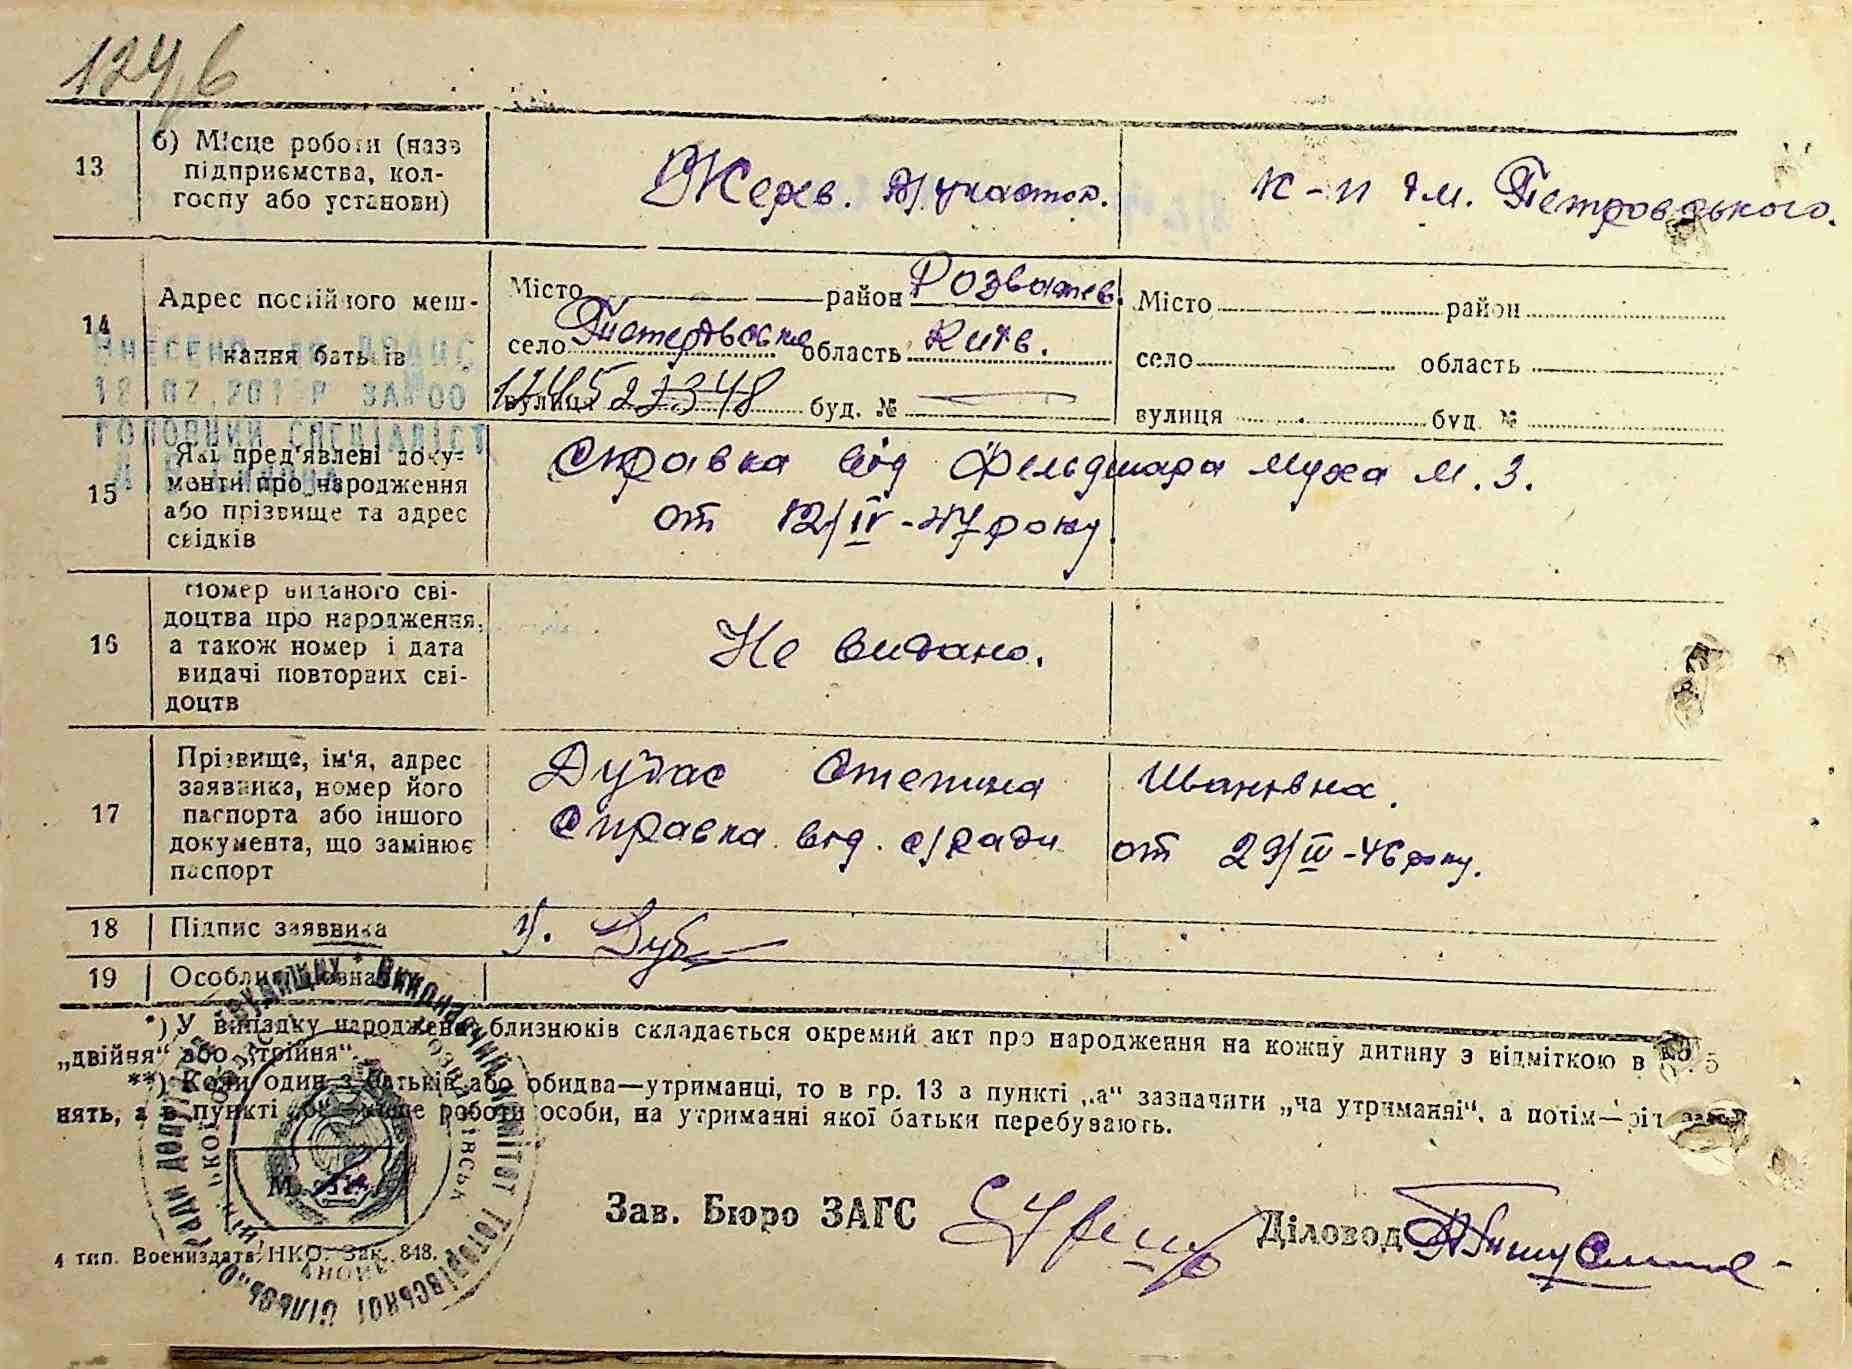 124,6
13
б) Місце роботи (назв підприємства, колгоспу або установи)
Жерев. В/участок.
к-п ім. Петровського.
14
Адрес постійного мешкання батьків
Місто район Розважев.
село область Київ.
вулиця 1145 22348 буд. №
Місто район
село область
вулиця буд. №
ВНЕСЕНО ДО ДРАЦС
ГОЛОВНИЙ СПЕЦІАЛІСТ
15
Які пред'явлені документи про народження або прізвище та адрес свідків
Справка від Фельдшара Муха М. З.
от 12/IV-47 року
16
Номер виданого свідоцтва про народження, а також номер і дата видачі повторних свідоцтв
Не видано.
17
Прізвище, ім'я, адрес заявника, номер його паспорта або іншого документа, що замінює паспорт
Степина Іванівна.
Справка від. с/ради от 29/III-46 року.
18
Підпис заявника
19
Особливі
*) У випадку народження близнюків складається окремий акт про народження на кожну дитину з відміткою в 5
„двійня“ або „трійня“.
**) Коли один з батьків або обидва—утриманці, то в гр. 13 з пункті „а“ зазначити „на утриманні“, а потім—рід
нять, а в пункті роботи особи, на утриманні якої батьки перебувають.
Зав. Бюро ЗАГС
Діловод
4 тип. Воениздата НКО. Зак. 848.